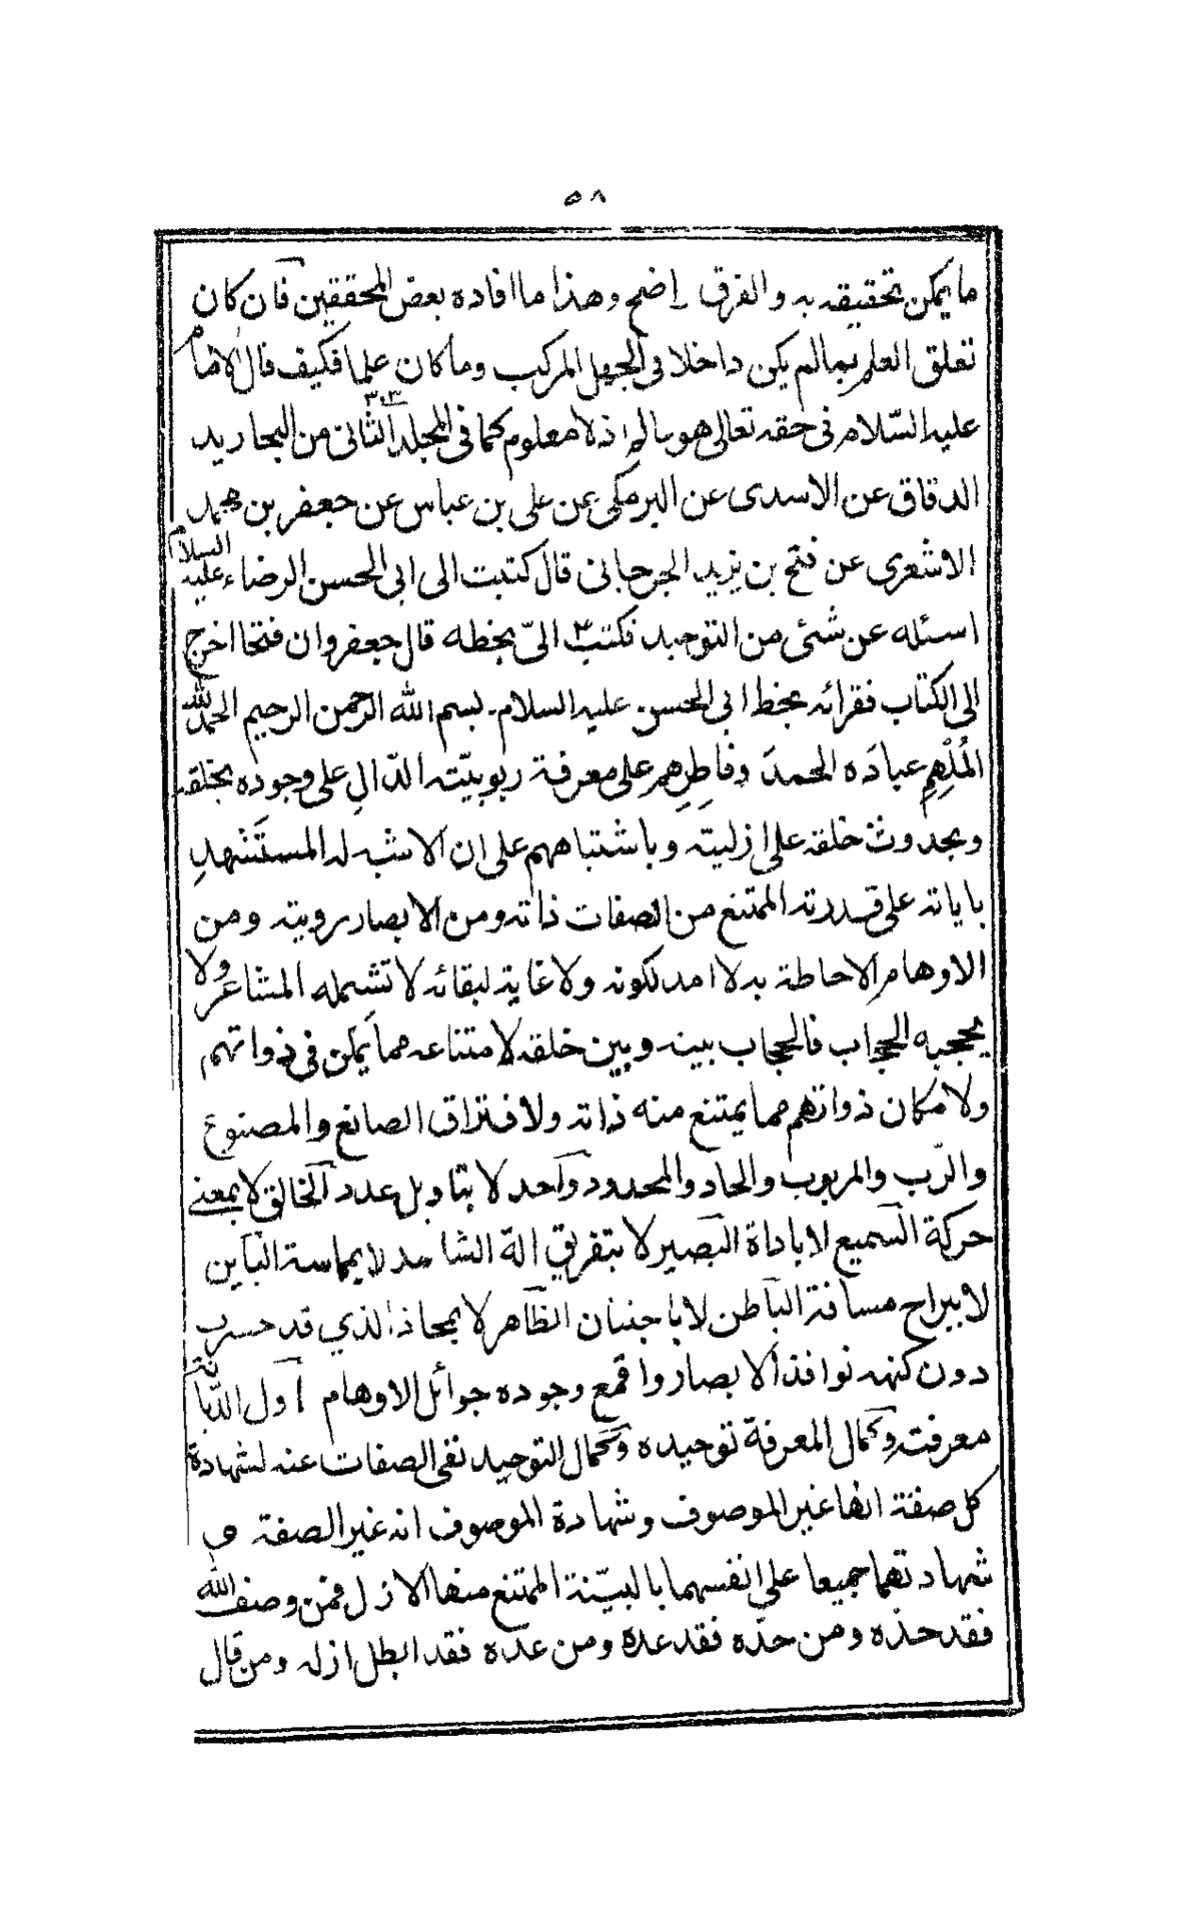 ٥٨
ما يمكن تحقيقه به والفرق اضح وهذا ما افاده بعض المحققين فان كان
تعلق العلم بمالم يكن داخلا فى الجهل المركب وما كان علما فكيف قال الامام
عليه السّلام فى حقه تعالى هو عالم اذ لا معلوم كما فى المجلد الثانى من البحار يد
الدقاق عن الاسدى عن البرمكى عن على بن عباس عن جعفر بن محمد
الاشعرى عن فتح بن يزيد الجرجانى قال كتبت الى ابى الحسن الرضاء عليه السلام
اسئله عن شئى من التوحيد فكتب الىّ بخطه قال جعفر وان فتحا اخرج
الى الكتاب فقرائه بخط ابى الحسن عليه السلام بسم الله الرحمن الرحيم الحمد لله
المُلْهِمِ عبادَه الحمدَ وفاطِرِهم على معرفة ربوبيّته الدّالِ على وجوده بخلقه
وبحدوث خلقه على ازليته وباشتباههم على ان لا شبه له المستَشهدِ
باياته على قدرته الممتنع من الصفات ذاته ومن الابصار رويته ومن
الاوهام الاحاطة به لا امد لكونه ولا غاية لبقائه لا تشمله المشاعر ولا
يحجبه الحجاب فالحجاب بينه وبين خلقه لامتناعه مما يمكن فى ذواتهم
ولامكان ذواتهم مما يمتنع منه ذاته ولافتراق الصانع والمصنوع
والرّب والمربوب والحاد والمحدود واحد لا بتاويل عدد الخالق لا بمعنى
حركة السميع لا باداة البصير لا بتفريق الة الشاهد لا بمماسة البآين
لا ببراح مسافة الباطن لا باجتنان الظاهر لا بمحاذ الذي قد حسرت
دون كنهه نوافذ الابصار واقمع وجوده جوائل الاوهام اول الدّيانة
معرفته وكمال المعرفة توحيده وكمال التوحيد نفى الصفات عنه لشهادة
كل صفة انها غير الموصوف وشهادة الموصوف انه غير الصفة و
شهادتهما جميعا على انفسهما بالبيّنة الممتنع منها الازل فمن وصف الله
فقد حدّه ومن حدّه فقد عدّه ومن عدّه فقد ابطل ازله ومن قال